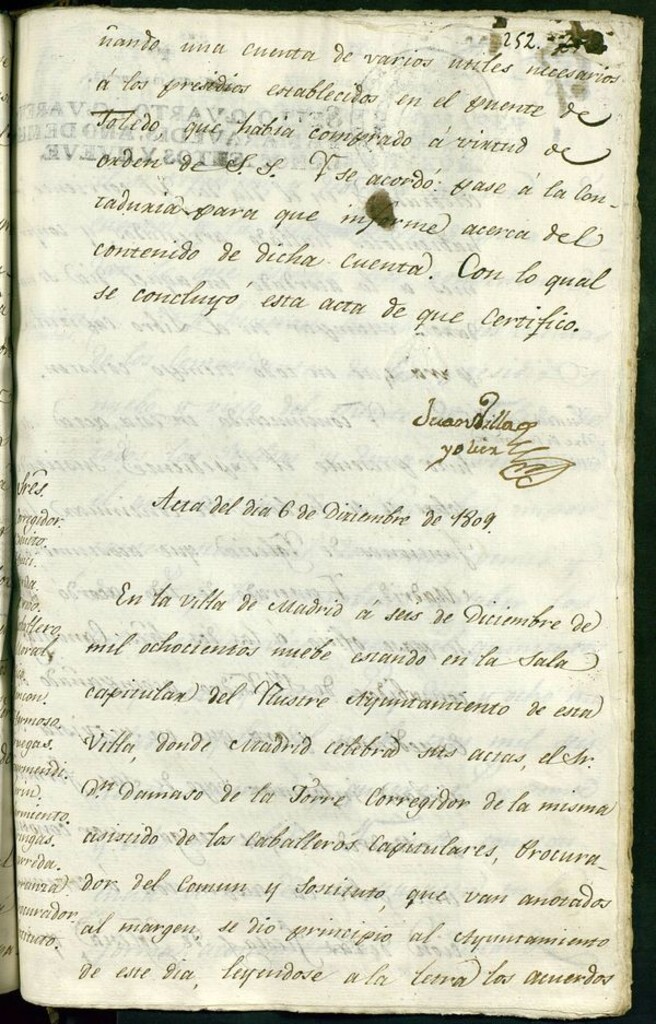 252.
ñando una cuenta de varios utiles necesarios
á los presidios establecidos en el puente de
Toledo que habia comprado á virtud de
orden de S. S. Y se acordó: pase á la Con-
taduria para que informe acerca del
contenido de dicha cuenta. Con lo qual
se concluyó esta acta de que certifico.
Juan Villa
y Olier
Acta del dia 6 de Diziembre de 1809.
En la Villa de Madrid á seis de Diciembre de
mil ochocientos nuebe estando en la Sala
capitular del Ilustre Ayuntamiento de esta
Villa, donde Madrid celebra sus actas, el Sr.
Dn. Damaso de la Torre Corregidor de la misma
asistido de los Caballeros Capitulares, Procura-
dor del Comun y Sostituto, que van anotados
al margen, se dio principio al Ayuntamiento
de este dia, leyendose a la letra los acuerdos